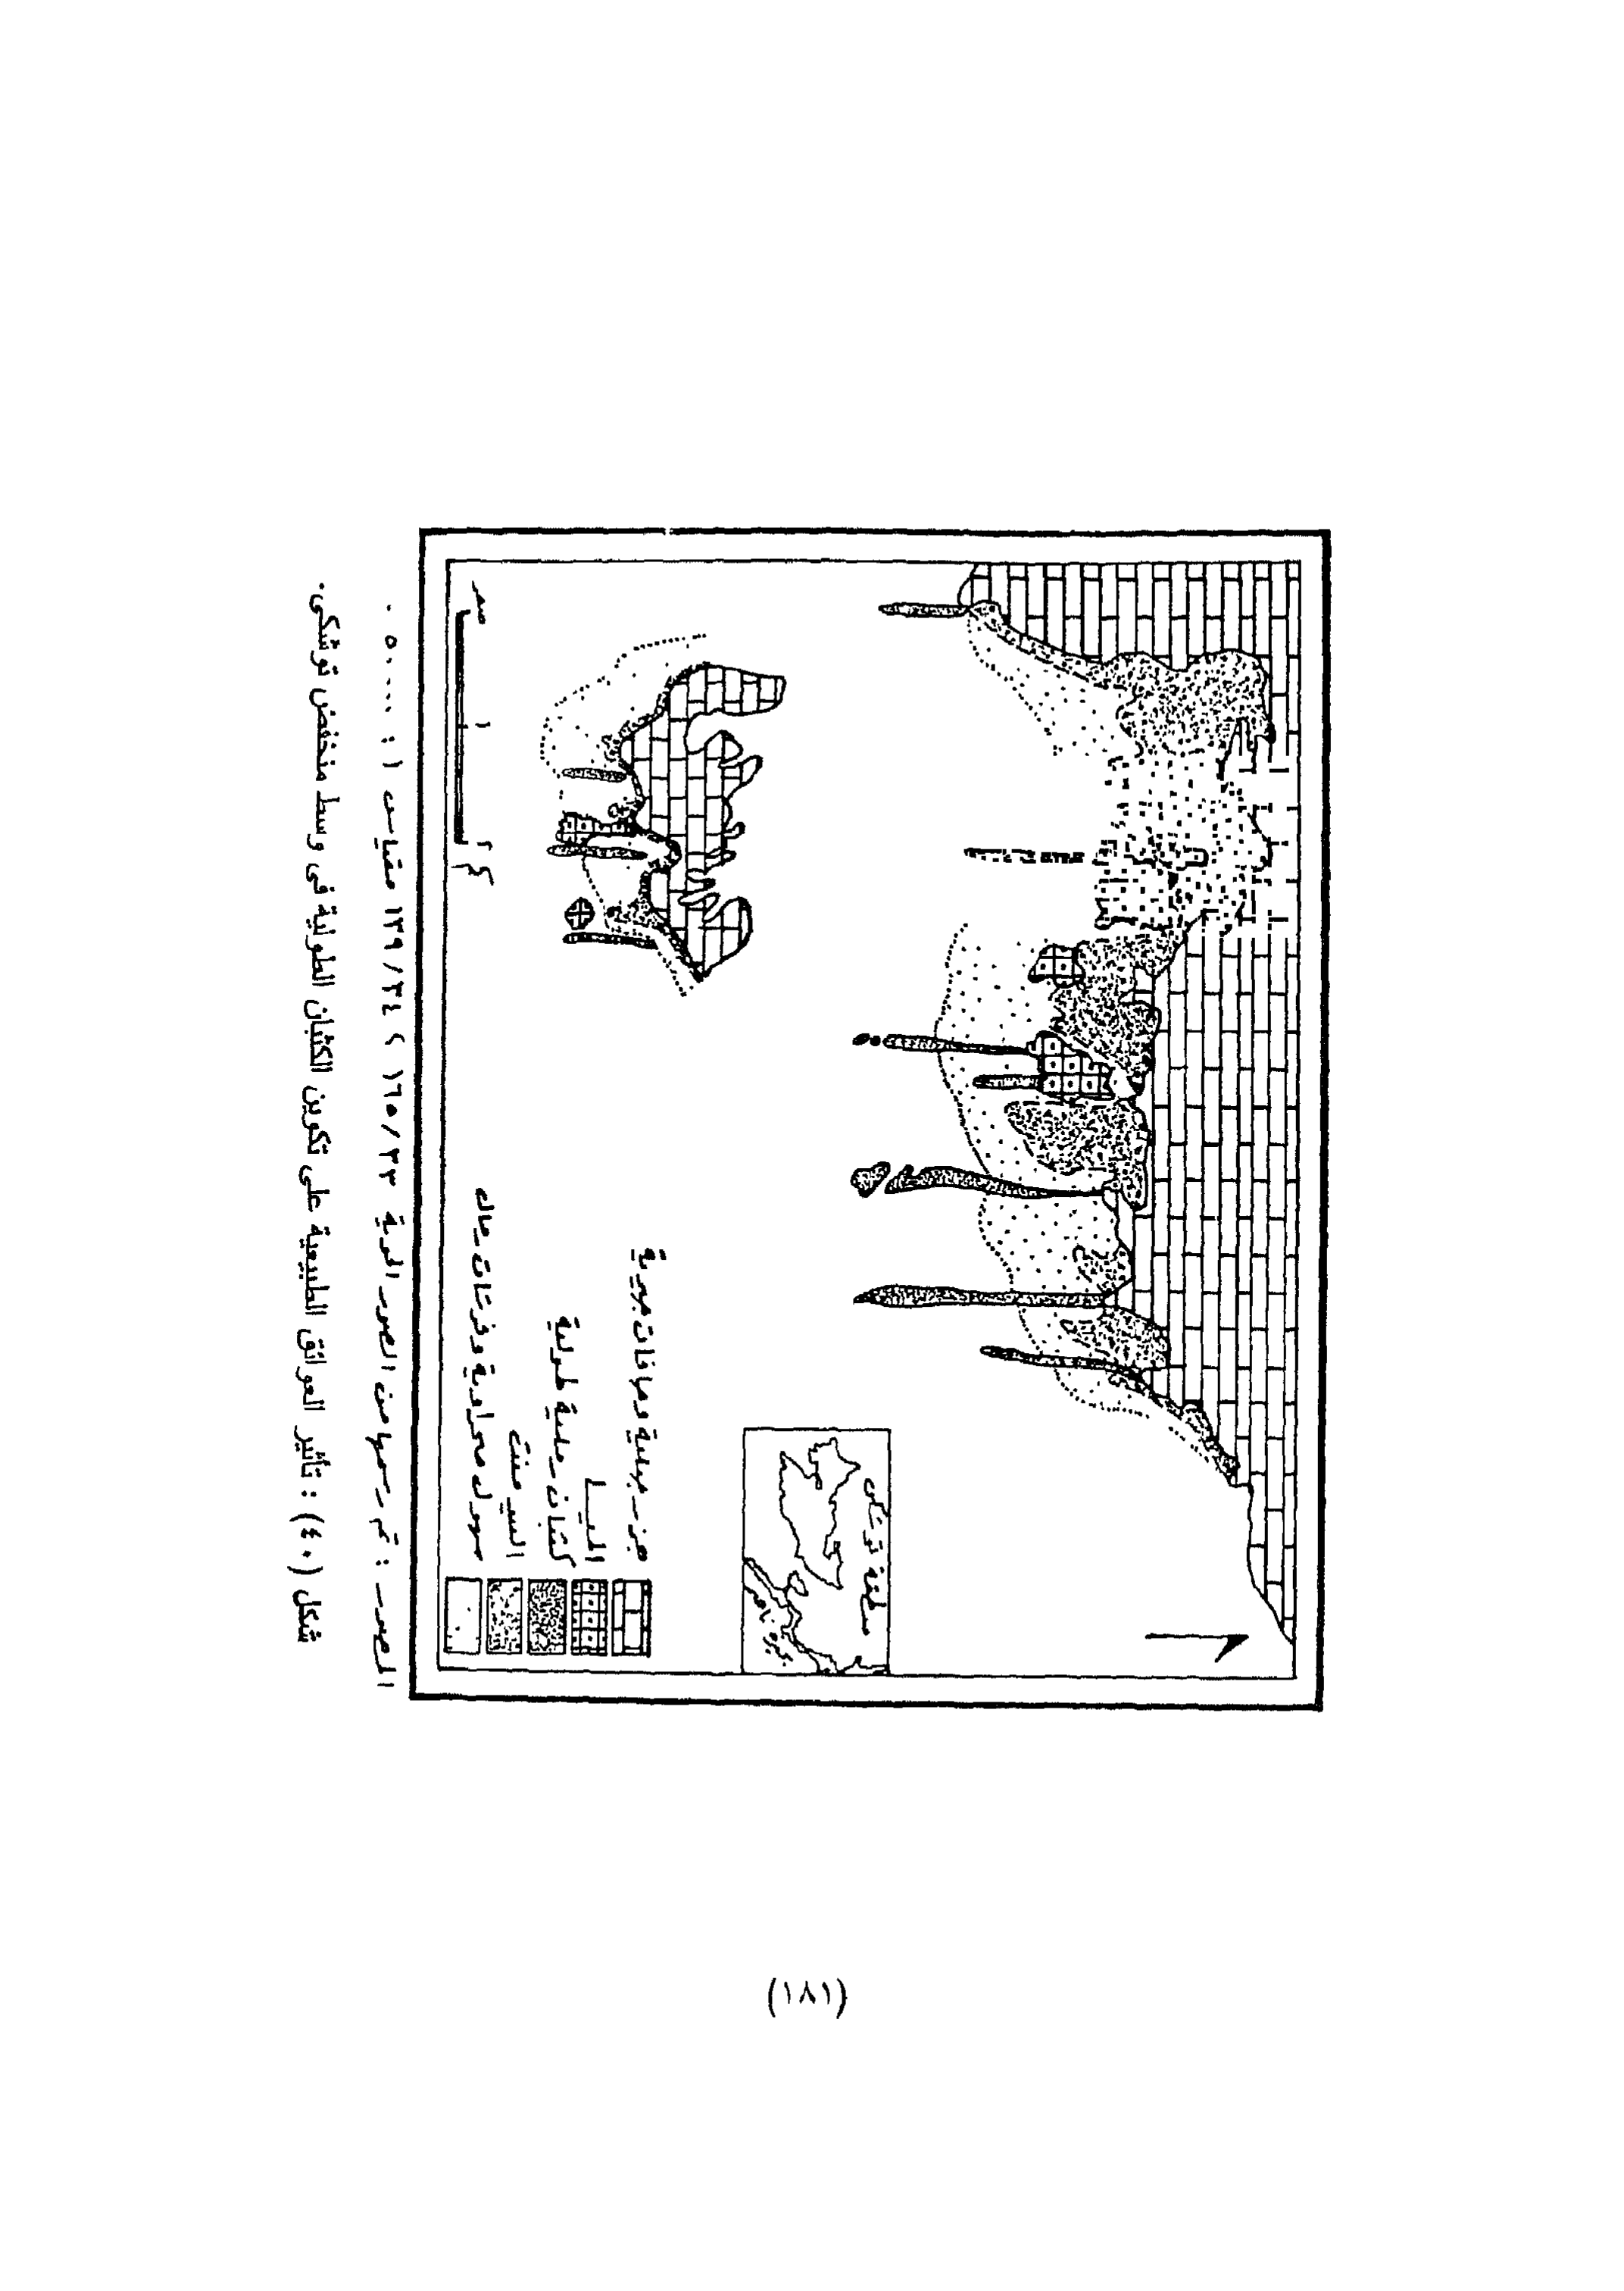 منطقة توشكى
جزر جبلية وحافات جيرية
الميسا
كثبان رملية طولية
السيدمنت
سهول صحراوية وفرشات رمال
صفر ١ ٢ كم
المصدر : تم رسمها من الصور الجوية ١٦٥/٣٣ ، ١٣٩/٣٤ مقياس ١ : ٥٠٠٠٠ .
شكل (٤٠) : تأثير العوائق الطبيعية على تكوين الكثبان الطولية فى وسط منخفض توشكى.
(١٨١)